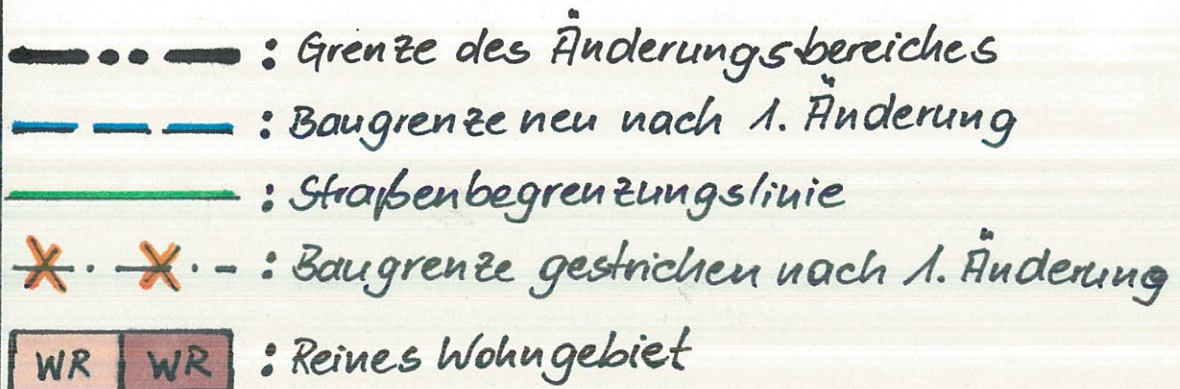 : Grenze des Änderungsbereiches
: Baugrenze neu nach 1. Änderung
: Straßenbegrenzungslinie
: Baugrenze gestrichen nach 1. Änderung
WR WR : Reines Wohngebiet